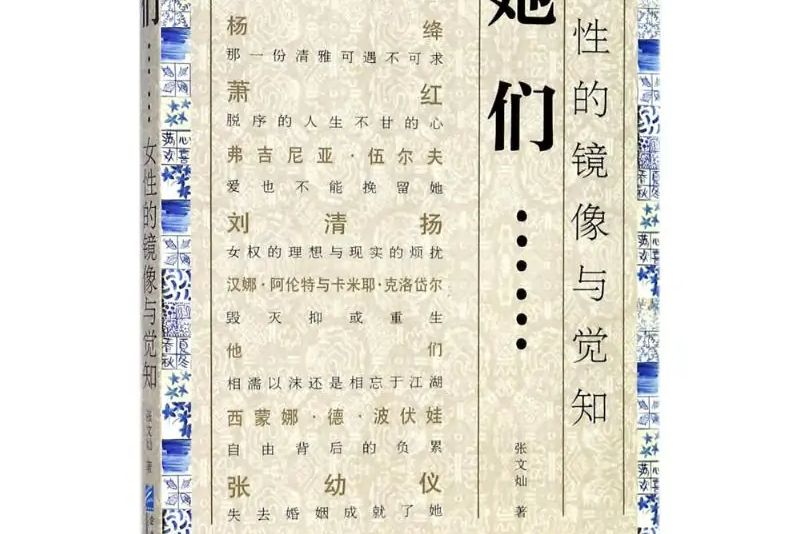 们……女性的镜像与觉知
张文灿 著
杨绛
那一份清雅可遇不可求
萧红
脱序的人生不甘的心
弗吉尼亚·伍尔夫
爱也不能挽留她
刘清扬
女权的理想与现实的烦扰
汉娜·阿伦特与卡米耶·克洛岱尔
毁灭抑或重生
他们
相濡以沫还是相忘于江湖
西蒙娜·德·波伏娃
自由背后的负累
张幼仪
失去婚姻成就了她
她们……
性的镜像与觉知
张文灿 著